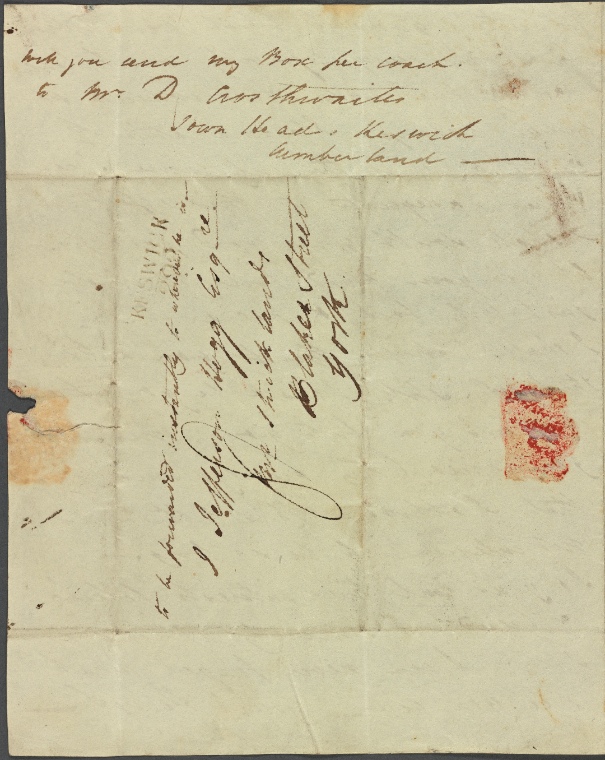 Will you send my Box per coach.
to Mr. D Crosthwaites
Town Head, Keswick
Cumberland
KESWICK
to be forwarded instantly to wherever he is
J Jefferson Hogg Esq—re.
Stricklands
Blake Street
York.